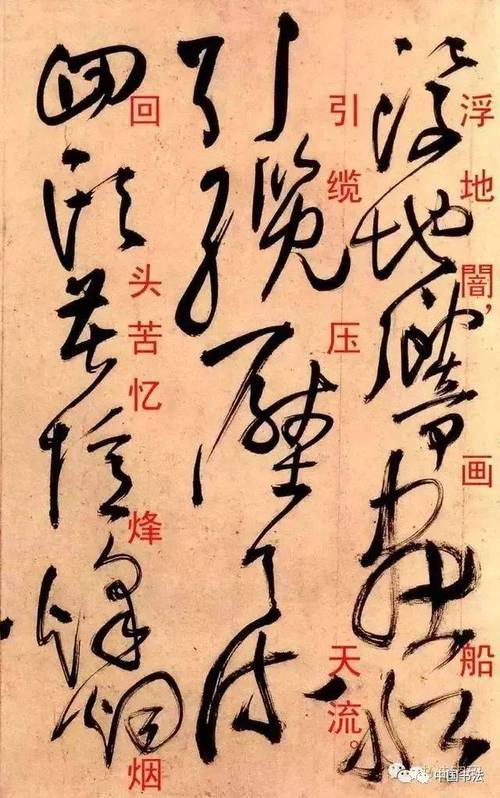 浮地闇，画船
引缆压天流。
回头苦忆烽烟
中国书法